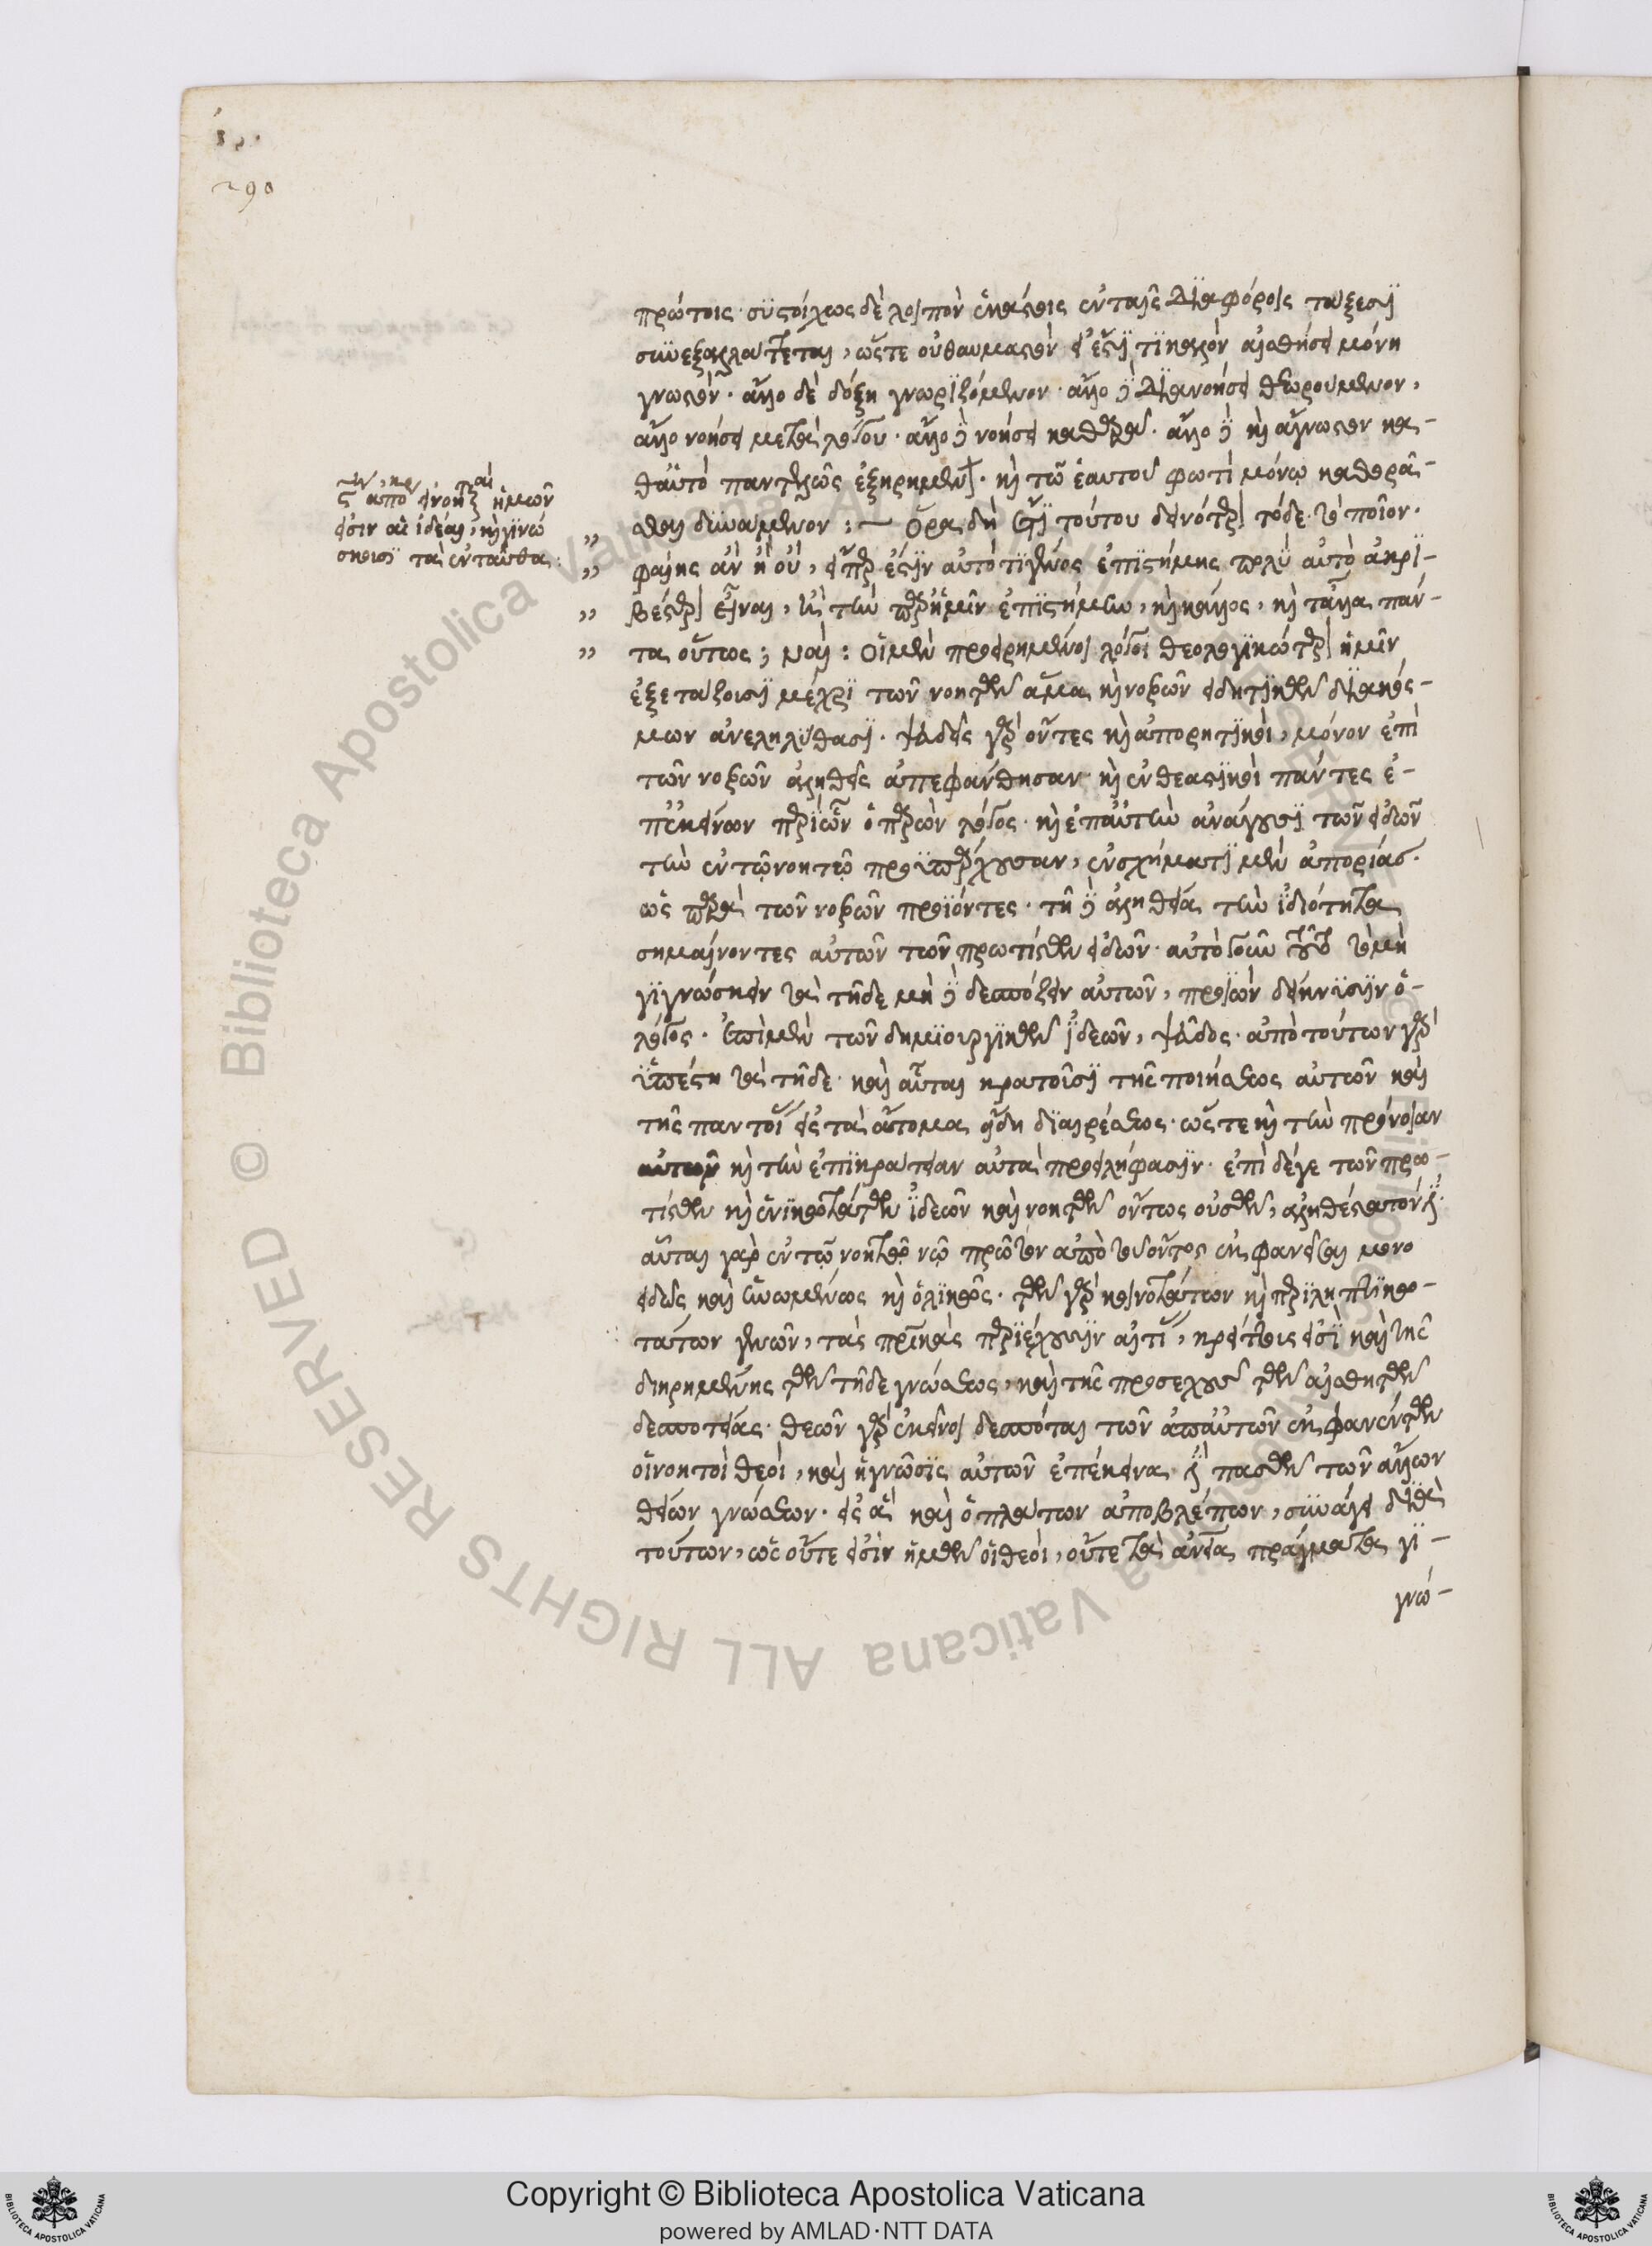 290
πρώτοις· συστοίχως δὲ λοιπὸν ἑκάστοις ἐν ταῖς διαφόροις τάξεσι
συνεξαλλάττεται, ὥστε οὐ θαυμαστὸν εἰ ἔστι τὶ καλὸν αἰσθήσει μόνη
γνωστόν· ἄλλο δὲ δόξη γνωριζόμενον· ἄλλο δὲ διανοήσει θεωρούμενον,
ἄλλο νοήσει μετὰ λόγου· ἄλλο δὲ νοήσει καθαρᾷ· ἄλλο δὲ καὶ ἄγνωστον κα-
θ' αὑτὸ παντελῶς ἐξηρημένον· καὶ τῷ ἑαυτοῦ φωτὶ μόνῳ καθορᾶ-
σθαι δυνάμενον :— Ὅρα δὴ ἔτι τούτου δεινότερον τόδε· τὸ ποῖον·
φαίης ἂν ἢ οὔ, εἴπερ ἔστιν αὐτό τι γένος ἐπιστήμης πολὺ αὐτὸ ἀκρι-
βέστερον εἶναι, ἢ τὴν παρ' ἡμῖν ἐπιστήμην, καὶ κάλλος, καὶ τἆλλα πάν-
τα οὕτως; ναί : Οἱ μὲν προειρημένοι λόγοι θεολογικώτερον ἡμῖν
τάξεσι μέχρι τῶν νοητῶν ἅμα καὶ νοερῶν
μων ἀνεληλύθασι· ψευδεῖς γὰρ ὄντες καὶ ἀπορητικοὶ, μόνον ἐπὶ
τῶν νοερῶν ἀληθεῖς ἀπεφάνθησαν· καὶ ἐνθεαστικοὶ πάντες ἐ-
π' ἐκείνων περιιὼν ὁ παρὼν λόγος· καὶ ἐπ' αὐτὴν ἀνάγουσι τῶν εἰδῶν
τὴν ἐν τῷ νοητῷ προϋπάρχουσαν, ἐν σχήματι μὲν ἀπορίας·
ὡς παρὰ τῶν νοερῶν προϊόντες· τῇ δὲ ἀληθείᾳ τὴν ἰδιότητα
σημαίνοντες αὐτῶν τῶν πρωτίστων εἰδῶν· αὐτὸ γοῦν τοῦτο τὸ μὴ
γιγνώσκειν τὰ τῇδε μὴ δὲ δεσπόζειν αὐτῶν, προϊὼν δείκνυσιν ὁ
λόγος· ἐπὶ μὲν τῶν δημιουργικῶν ἰδεῶν, ψεῦδος· ἀπὸ τούτων γὰρ
ὑπέστη τὰ τῇδε· καὶ αὗται κρατοῦσι τῆς ποιήσεως αὐτῶν καὶ
τῆς παντοίας εἰς τὰ ἄτομα εἴδη διαιρέσεως· ὥστε καὶ τὴν πρόνοιαν
αὐτῶν καὶ τὴν ἐπικράτειαν αὐταὶ προειλήφασιν· ἐπὶ δέ γε τῶν πρω-
τίστων καὶ ἑνικωτάτων ἰδεῶν καὶ νοητῶν ὄντως οὐσῶν, ἀληθέστατόν ἐστι·
αὗται γὰρ ἐν τῷ νοητῷ νῷ πρῶτον ἀπὸ τοῦ ὄντος ἐκφανεῖσαι μονο
ειδῶς καὶ ἡνωμένως καὶ ὁλικῶς· τῶν γὰρ κοινοτάτων καὶ περιληπτικω-
τάτων γενῶν, τὰς πρὸς περιέχουσιν αἰτίας, κρείττους εἰσὶ καὶ τῆς
διῃρημένης τῶν τῇδε γνώσεως, καὶ τῆς προσεχοῦς τῶν αἰσθητῶν
δεσποτείας· θεῶν γὰρ ἐκεῖνοι δεσπόται τῶν ἀπ' αὐτῶν ἐκφανέντων
οἱ νοητοὶ θεοὶ, καὶ ἡ γνῶσις αὐτῶν ἐπέκεινα ἐστὶ πασῶν τῶν ἄλλων
θείων γνώσεων· εἰς ἃ καὶ ὁ πλάτων ἀποβλέπων, συνάγει διὰ
τούτων, ὡς οὔτε εἰσὶν ἡμῶν οἱ θεοὶ, οὔτε τὰ ἀνθρώπεια πράγματα γι-
γνώ-
ἀπὸ ἡμῶν
εἰσιν αἱ ἰδέαι, καὶ γινώ
σκουσι τὰ ἐνταῦθα :